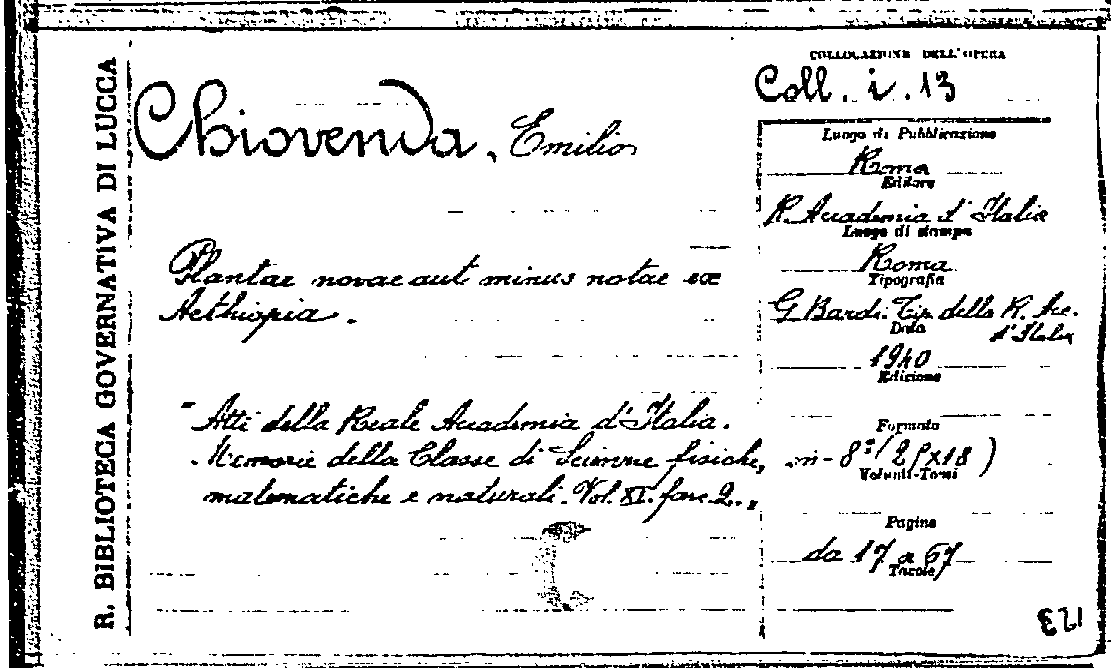 R. BIBLIOTECA GOVERNATIVA DI LUCCA
Chiovenda, Emilio
Plantae novae aut minus notae ex
Aethiopia.
"Atti della Reale Accademia d'Italia.
Memorie della Classe di Scienze fisiche,
matematiche e naturali. Vol. XI. fasc. 2.„
COLLOCAZIONE DELL'OPERA
Coll. i. 13
Luogo di Pubblicazione
Roma
Editore
R. Accademia d'Italia
Luogo di stampa
Roma
Tipografia
G. Bardi. Tip. della R. Ac.
d'Italia
Data
1940
Edizione
Formato
in - 8° (28x18)
Volumi-Tomi
Pagine
da 17 a 67
Tavole
123